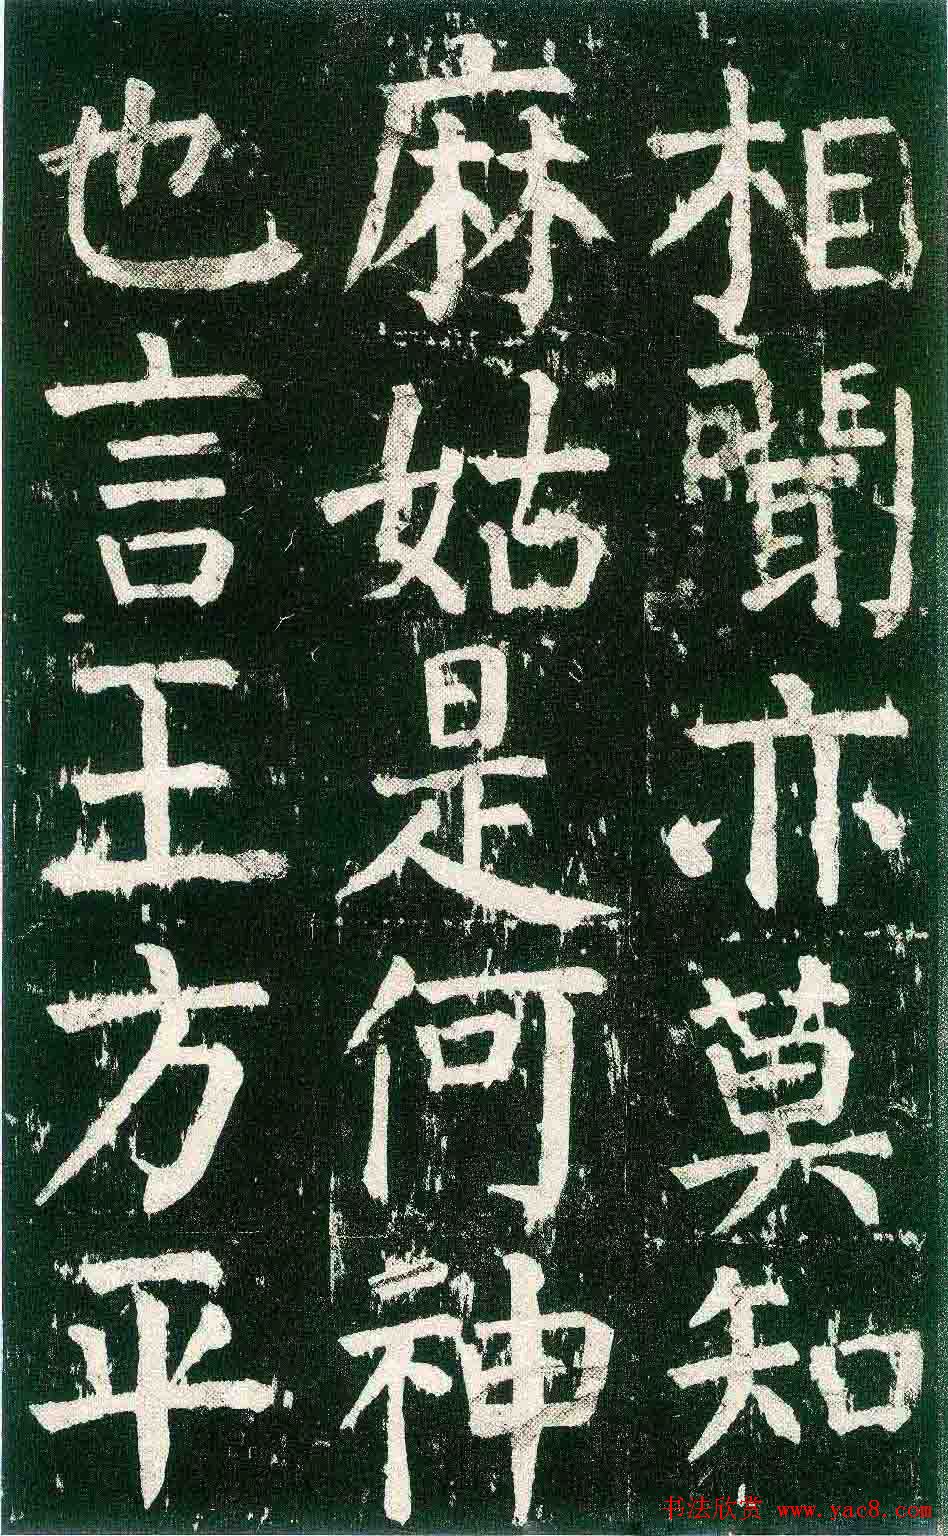 相聞亦莫知
麻姑是何神
也言王方平
书法欣赏 www.yac8.com